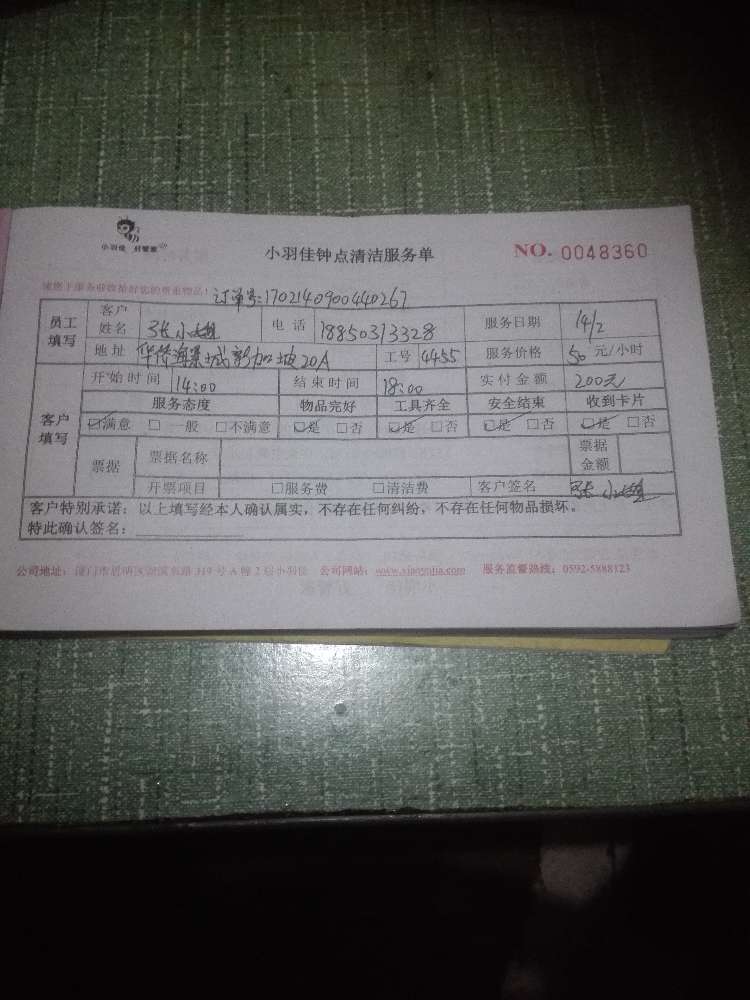 小羽佳 好管家
小羽佳钟点清洁服务单
NO. 0048360
订单号:170214090044026​7
员工填写 客户姓名 张小姐 电话 18850313328 服务日期 14/2
地址 华侨海景城新加坡20A 工号 4455 服务价格 50 元/小时
客户填写 开始时间 14:00 结束时间 18:00 实付金额 200元
服务态度 物品完好 工具齐全 安全结束 收到卡片
☑满意 □一般 □不满意 ☑是 □否 ☑是 □否 ☑是 □否 ☑是 □否
票据 票据名称 票据金额
开票项目 □服务费 □清洁费 客户签名 张小姐
客户特别承诺:以上填写经本人确认属实,不存在任何纠纷,不存在任何物品损坏。
特此确认签名:
公司地址: 厦门市思明区 号A幢2层小羽佳 公司网站: www.xiaoyujia.com 服务监督热线: 0592-5888123